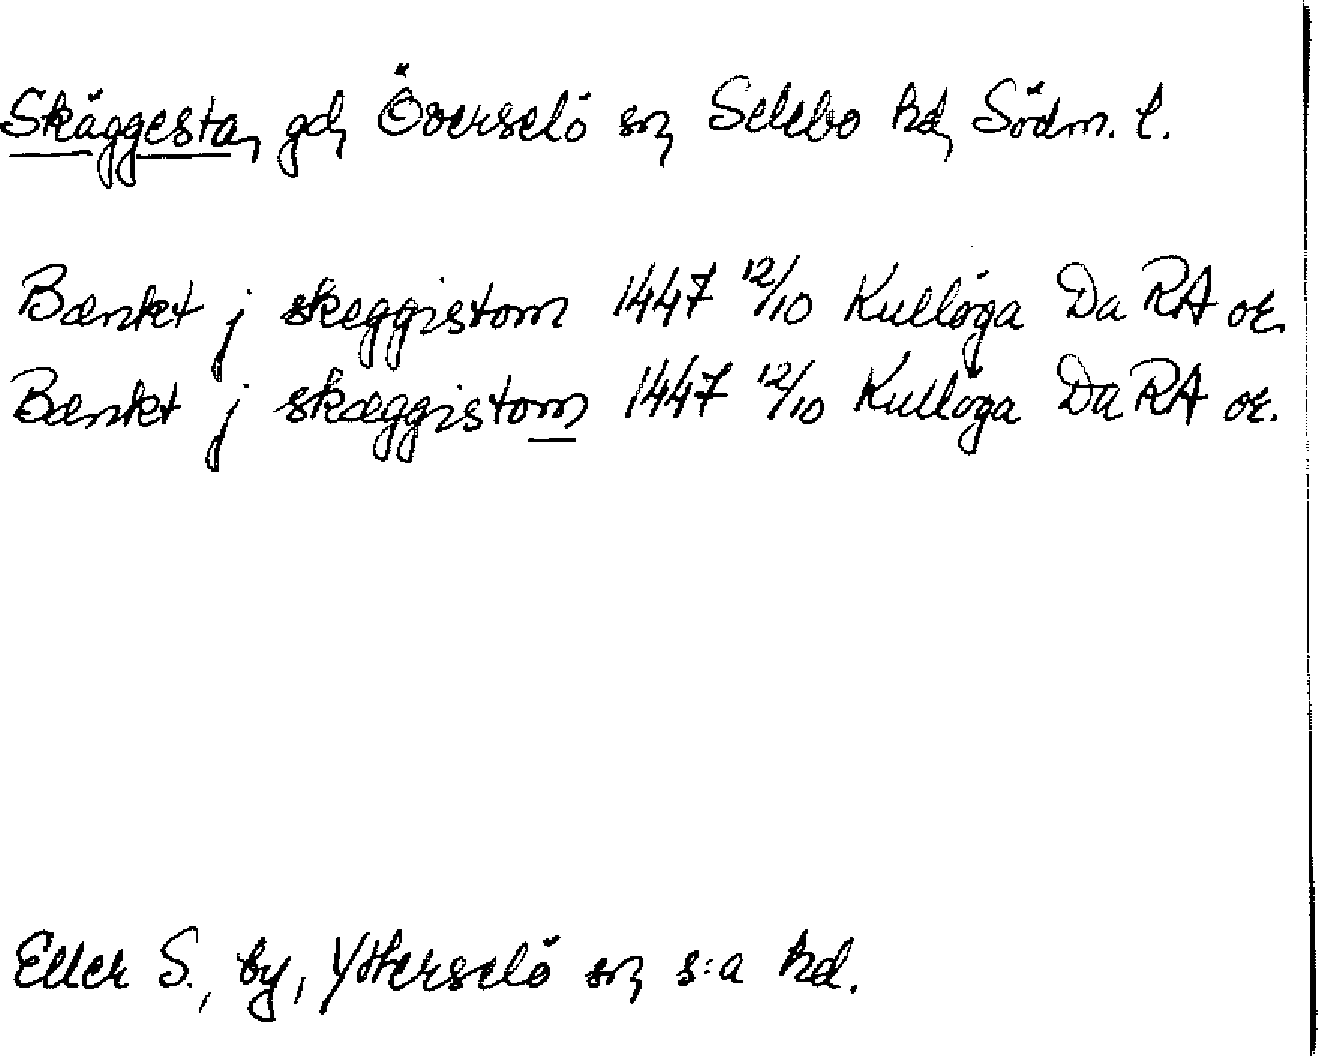 Skäggesta, gd, Överselö sn, Selebo hd, Södm. l.
Bænkt j skeggistom 1447 12/10 Kullöga Da RA or.
Bænkt j skæggistom 1447 12/10 Kullöga Da RA or.
Eller S., by, Ytterselö sn, s:a hd.